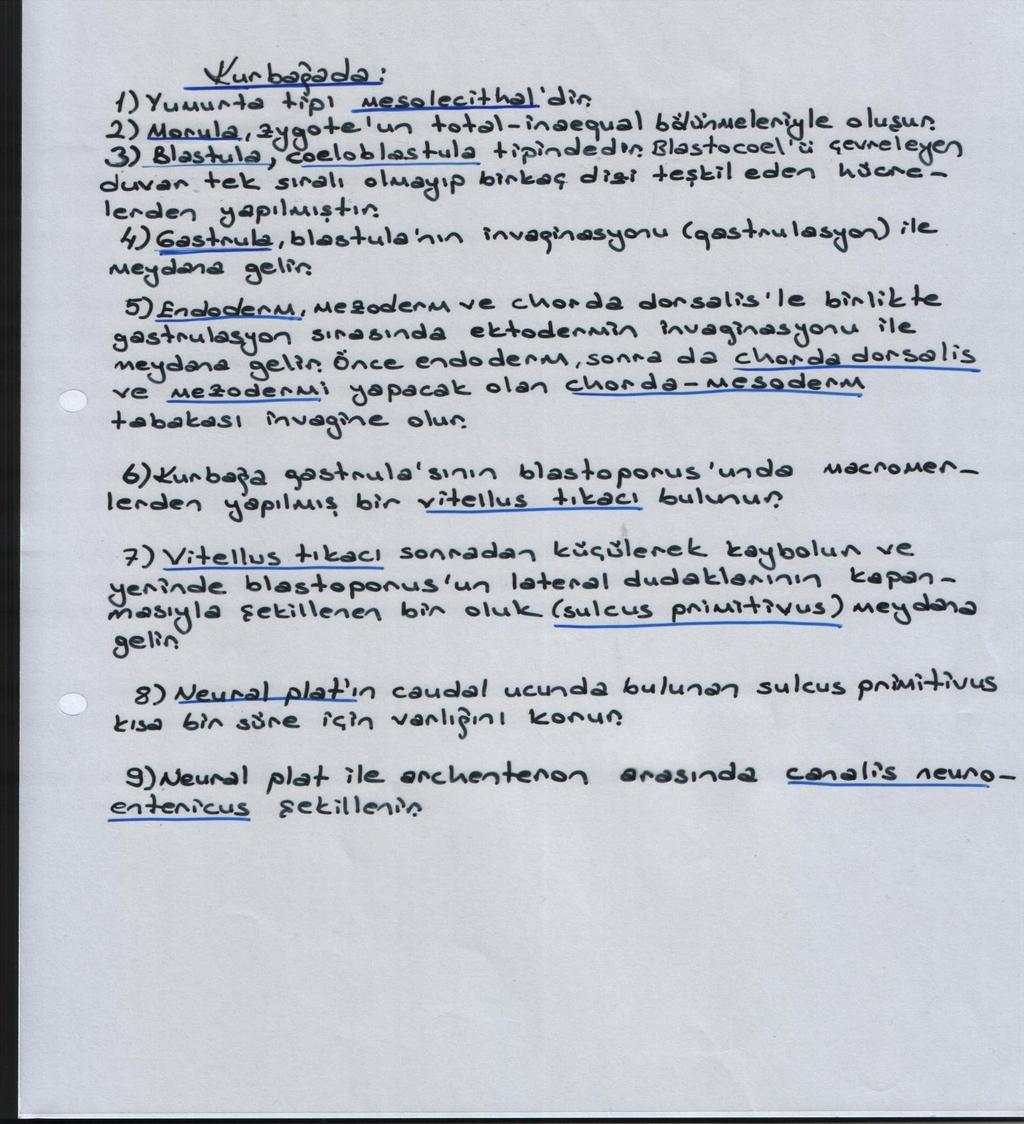 Kurbağada:
1) Yumurta tipi mesolecithal'dir.
2) Morula, zygote'un total-inaequal bölünmeleriyle oluşur.
3) Blastula, coeloblastula tipindedir. Blastocoel'ü çevreleyen
duvar tek sıralı olmayıp birkaç dizi teşkil eden hücre-
lerden yapılmıştır.
4) Gastrula, blastula'nın invaginasyonu (gastrulasyon) ile
meydana gelir.
5) Endoderm, mezoderm ve chorda dorsalis'le birlikte
gastrulasyon sırasında ektodermin invaginasyonu ile
meydana gelir. Önce endoderm, sonra da chorda dorsalis
ve mezodermi yapacak olan chorda-mesoderm
tabakası invagine olur.
6) Kurbağa gastrula'sının blastoporus'unda macromer-
lerden yapılmış bir vitellus tıkacı bulunur.
7) Vitellus tıkacı sonradan küçülerek kaybolur ve
yerinde blastoporus'un lateral dudaklarının kapan-
masıyla şekillenen bir oluk (sulcus primitivus) meydana
gelir.
8) Neural plat'ın caudal ucunda bulunan sulcus primitivus
kısa bir süre için varlığını korur.
9) Neural plat ile archenteron arasında canalis neuro-
entericus şekillenir.